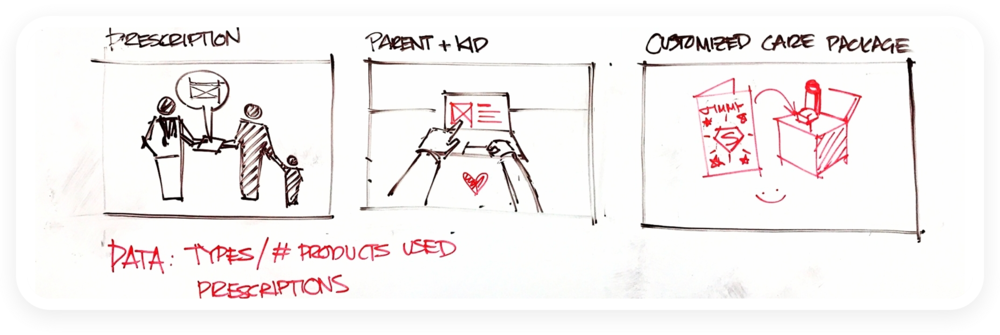 PRESCRIPTION
PARENT + KID
CUSTOMIZED CARE PACKAGE
JIMMY
S
DATA: TYPES/# PRODUCTS USED
PRESCRIPTIONS